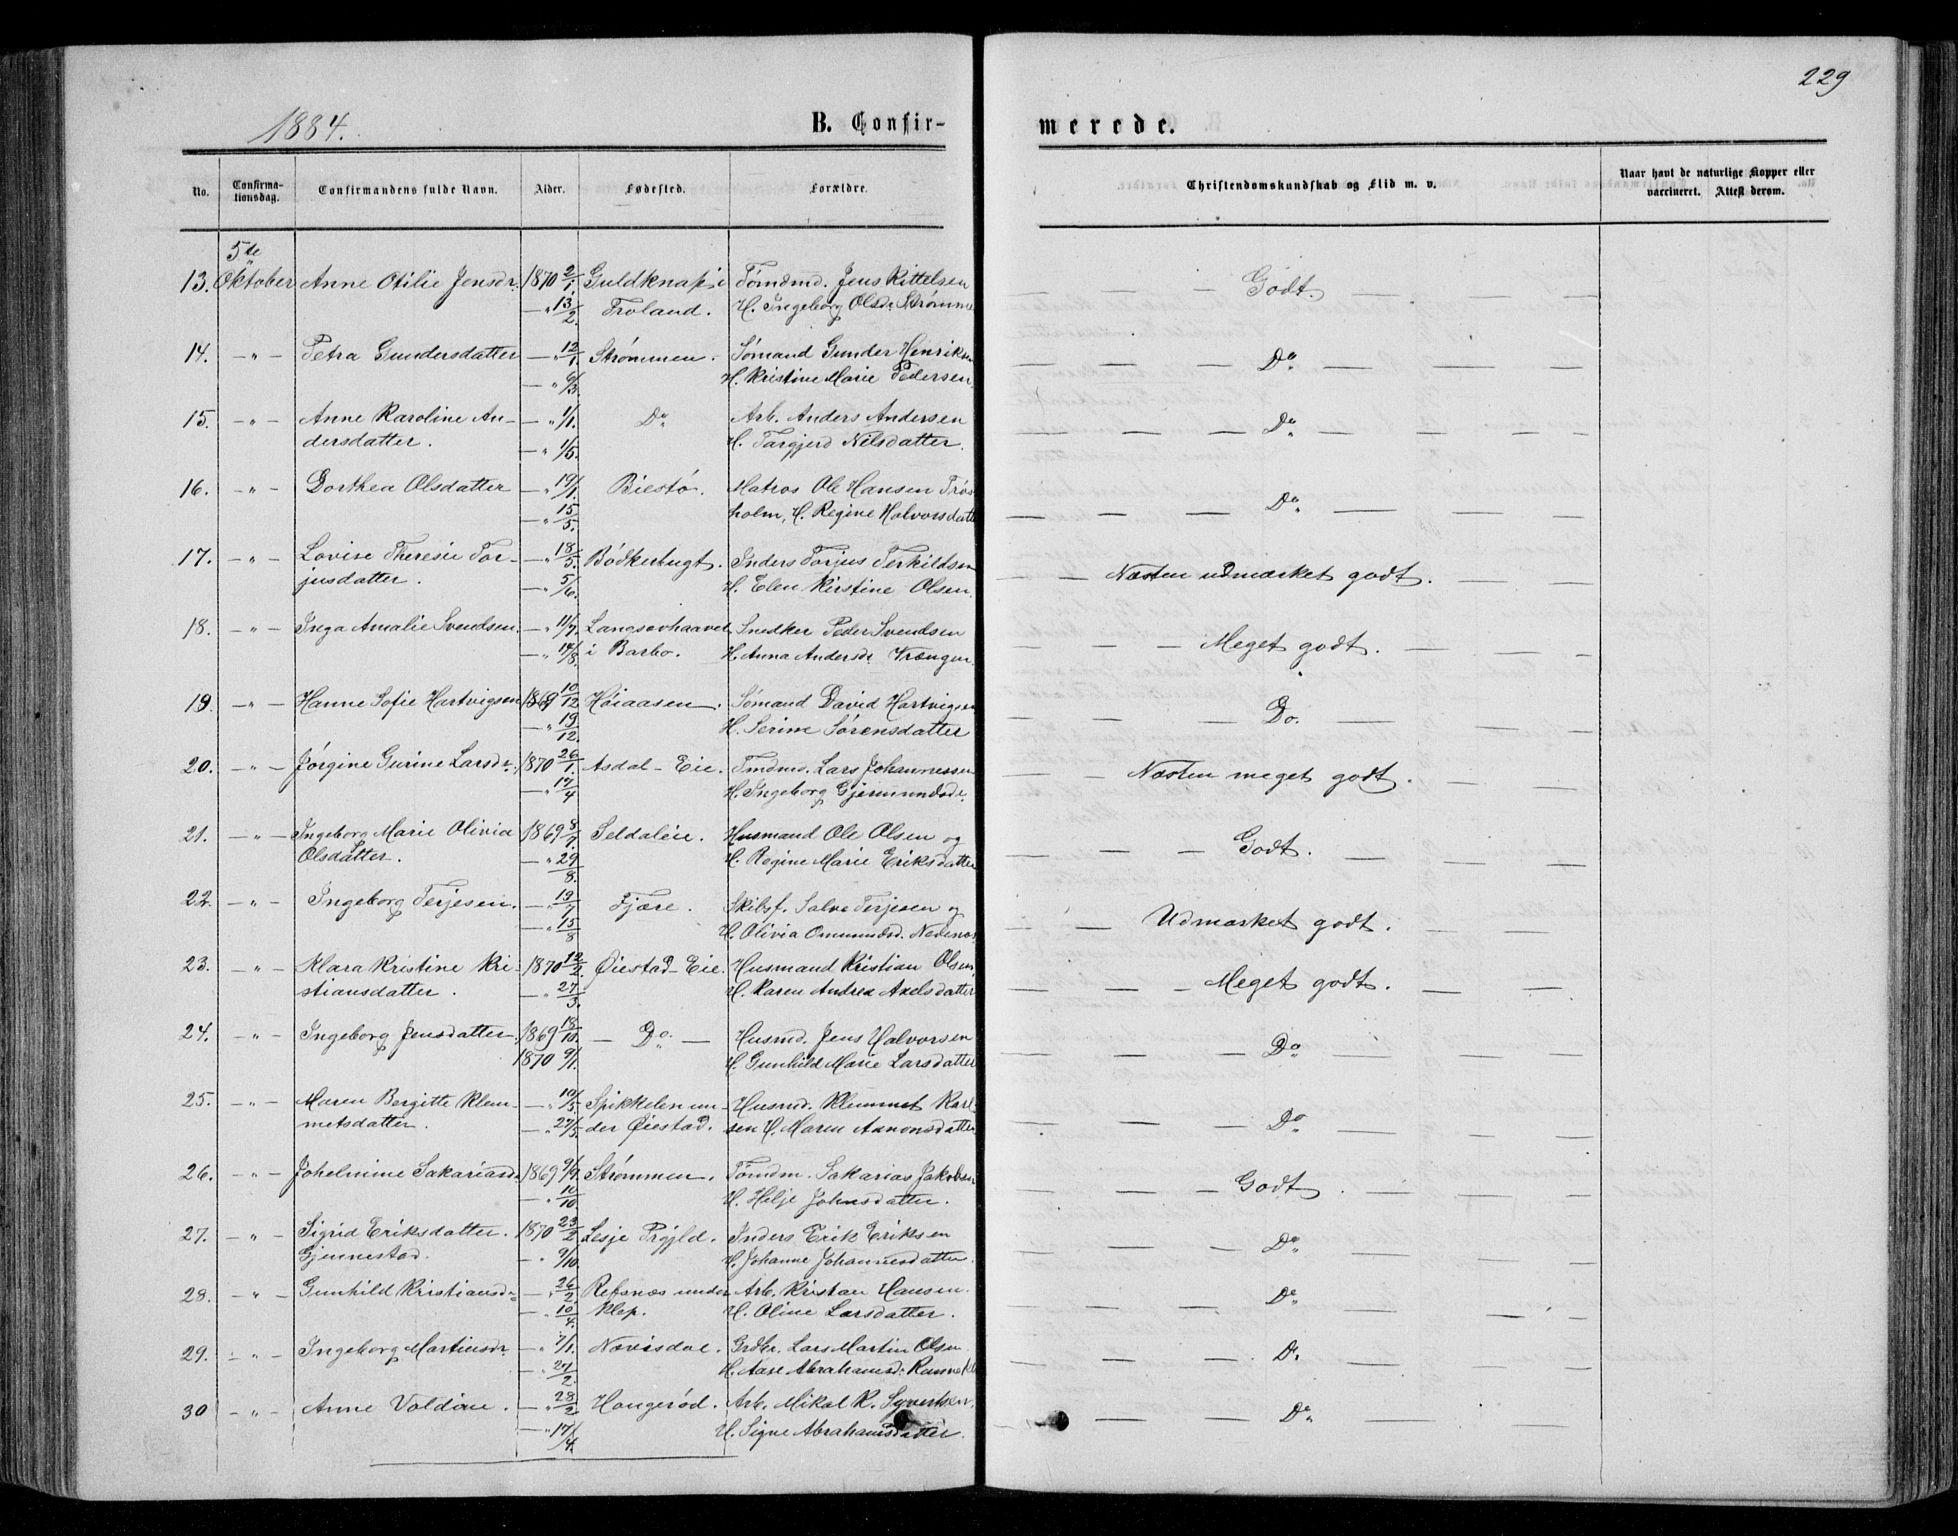 229
1884.
B. Confir-
merede.
No. Confirma-tionsdag. Confirmandens fulde Navn. Alder. Fødested. Forældre. Christendomskundskab og Flid m. v. Naar havt de naturlige Kopper eller vaccineret. Attest derom.
5te
13. Oktober Anne Otilie Jensdr. 1870 2/1. Guldknap i Tømdmd. Jens Kittelsen — — — Godt. — — —
— " 13/2. Froland. H. Ingeborg Olsdr. Strømme
14. — " — Petra Gundersdatter — " 12/1. Strømmen. Sømand Gunder Henriksen — — — Do. — — —
— " 6/3. H. Kristine Marie Pedersen.
15. — " — Anne Karoline An- — " 1/1. Do Arb. Anders Andersen — — — Do. — — —
dersdatter. — " 1/5. H. Targjerd Nilsdatter.
16. — " — Dorthea Olsdatter — " 19/1. Biestø. Matros Ole Hansen Trøs- — — — Do. — — —
— " 15/5. holm, H. Regine Halvorsdatter
17. — " — Lovise Theresie Tor- — " 18/5. Bødkerbugt. Inders Torjus Terkildsen — — Næsten udmærket godt. — —
jusdatter. — " 5/6. H. Elen Kirstine Olsen.
18. — " — Inga Amalie Svendsen. — " 11/7. Langsævhaavet Snedker Peder Svendsen — — — Meget godt. — — —
— " 14/8. i Barbo. H. Anna Andersdr. Vrængen
19. — " — Hanne Sofie Hartvigsen 1869 10/12. Høiaasen. Sømand David Hartvigsen — — — Do. — — —
— " 19/12. H. Serine Sørensdatter
20. — " — Jørgine Gurine Larsdr. 1870 26/1. Asdal-Eie. Tmdmd. Lars Johannessen — — Næsten meget godt. — —
— " 17/4 H. Ingeborg Gjermundsdr.
21. — " — Ingeborg Marie Olivia 1869 8/7. Seldaleie. Husmand Ole Olsen og — — — Godt. — — —
Olsdatter. — " 29/8. H. Regine Marie Eriksdatter
22. — " — Ingeborg Terjesen. — " 19/7 Fjære. Skibsf. Salve Terjesen og — — Udmærket godt. — —
— " 15/8 H. Olivia Omundsd. Nedenes
23. — " — Klara Kristine Kri- 1870 12/2. Øiestad-Eie. Husmand Kristian Olsen, — — — Meget godt. — —
stiansdatter. — " 27/3. H. Karen Andrea Axelsdatter
24. — " — Ingeborg Jensdatter. 1869 18/10. — Do. — Husmd. Jens Halvorsen — — — Do — — —
1870 9/1. H. Gunhild Marie Larsdatter
25. — " — Maren Bergitte Klem- — " 10/3 Spikkelen un- Husmd. Klemmet Karl- — — — Do — — —
metsdatter. — " 27/3. der Øiestad. sen H. Maren Aanonsdatter
26. — " — Johelmine Sakariasd. 1869 9/9. Strømmen. Tømdm. Sakarias Jakobsen — — — Godt. — — —
— " 10/10 H. Helje Johnsdatter.
27. — " — Sigrid Eriksdatter. 1870 23/2 Lesje Prgjld. Inders Erik Eriksen — — — Do. — — —
Gjennestad. — " 9/10. H. Johanne Johannesdatter.
28. — " — Gunhild Kristiansdr. — " 26/2 Refsnes under Arb. Kristian Hansen. — — — Do. — — —
— " 10/4. Klep. H. Oline Larsdatter.
29. — " — Ingeborg Martinsdr. — " 7/1. Nævisdal. Grdbr. Lars Martin Olsen — — — Do. — — —
— " 27/2. H. Aase Abrahamsd.
30 — " — Anne Valdine. — " 28/2. Hangerød. Arb. Mikal K. Syvertsen. — — — Do. — — —
— " 17/4. H. Signe Abrahamsdatter.